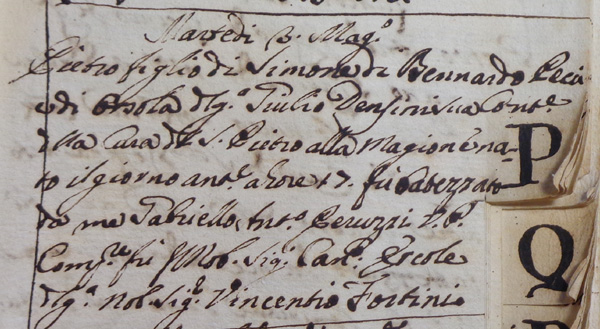 Martedi 3. Mag.o
Pietro figlio di Simone di Bennardo Peci
e di Orsola d'lg.a Giulio Densini sua Cons.e
d'lla Cura di S. Pietro alla Magione na-
to il giorno ant.e a hore 17. fu batezzato
P
da me Gabriello Ant.o Peruzzi P.B.
Comp.e fu Nob. Sig. Cav. Ercole
Q
d'lg.a Nob. Sig.e Vincentio Fortini